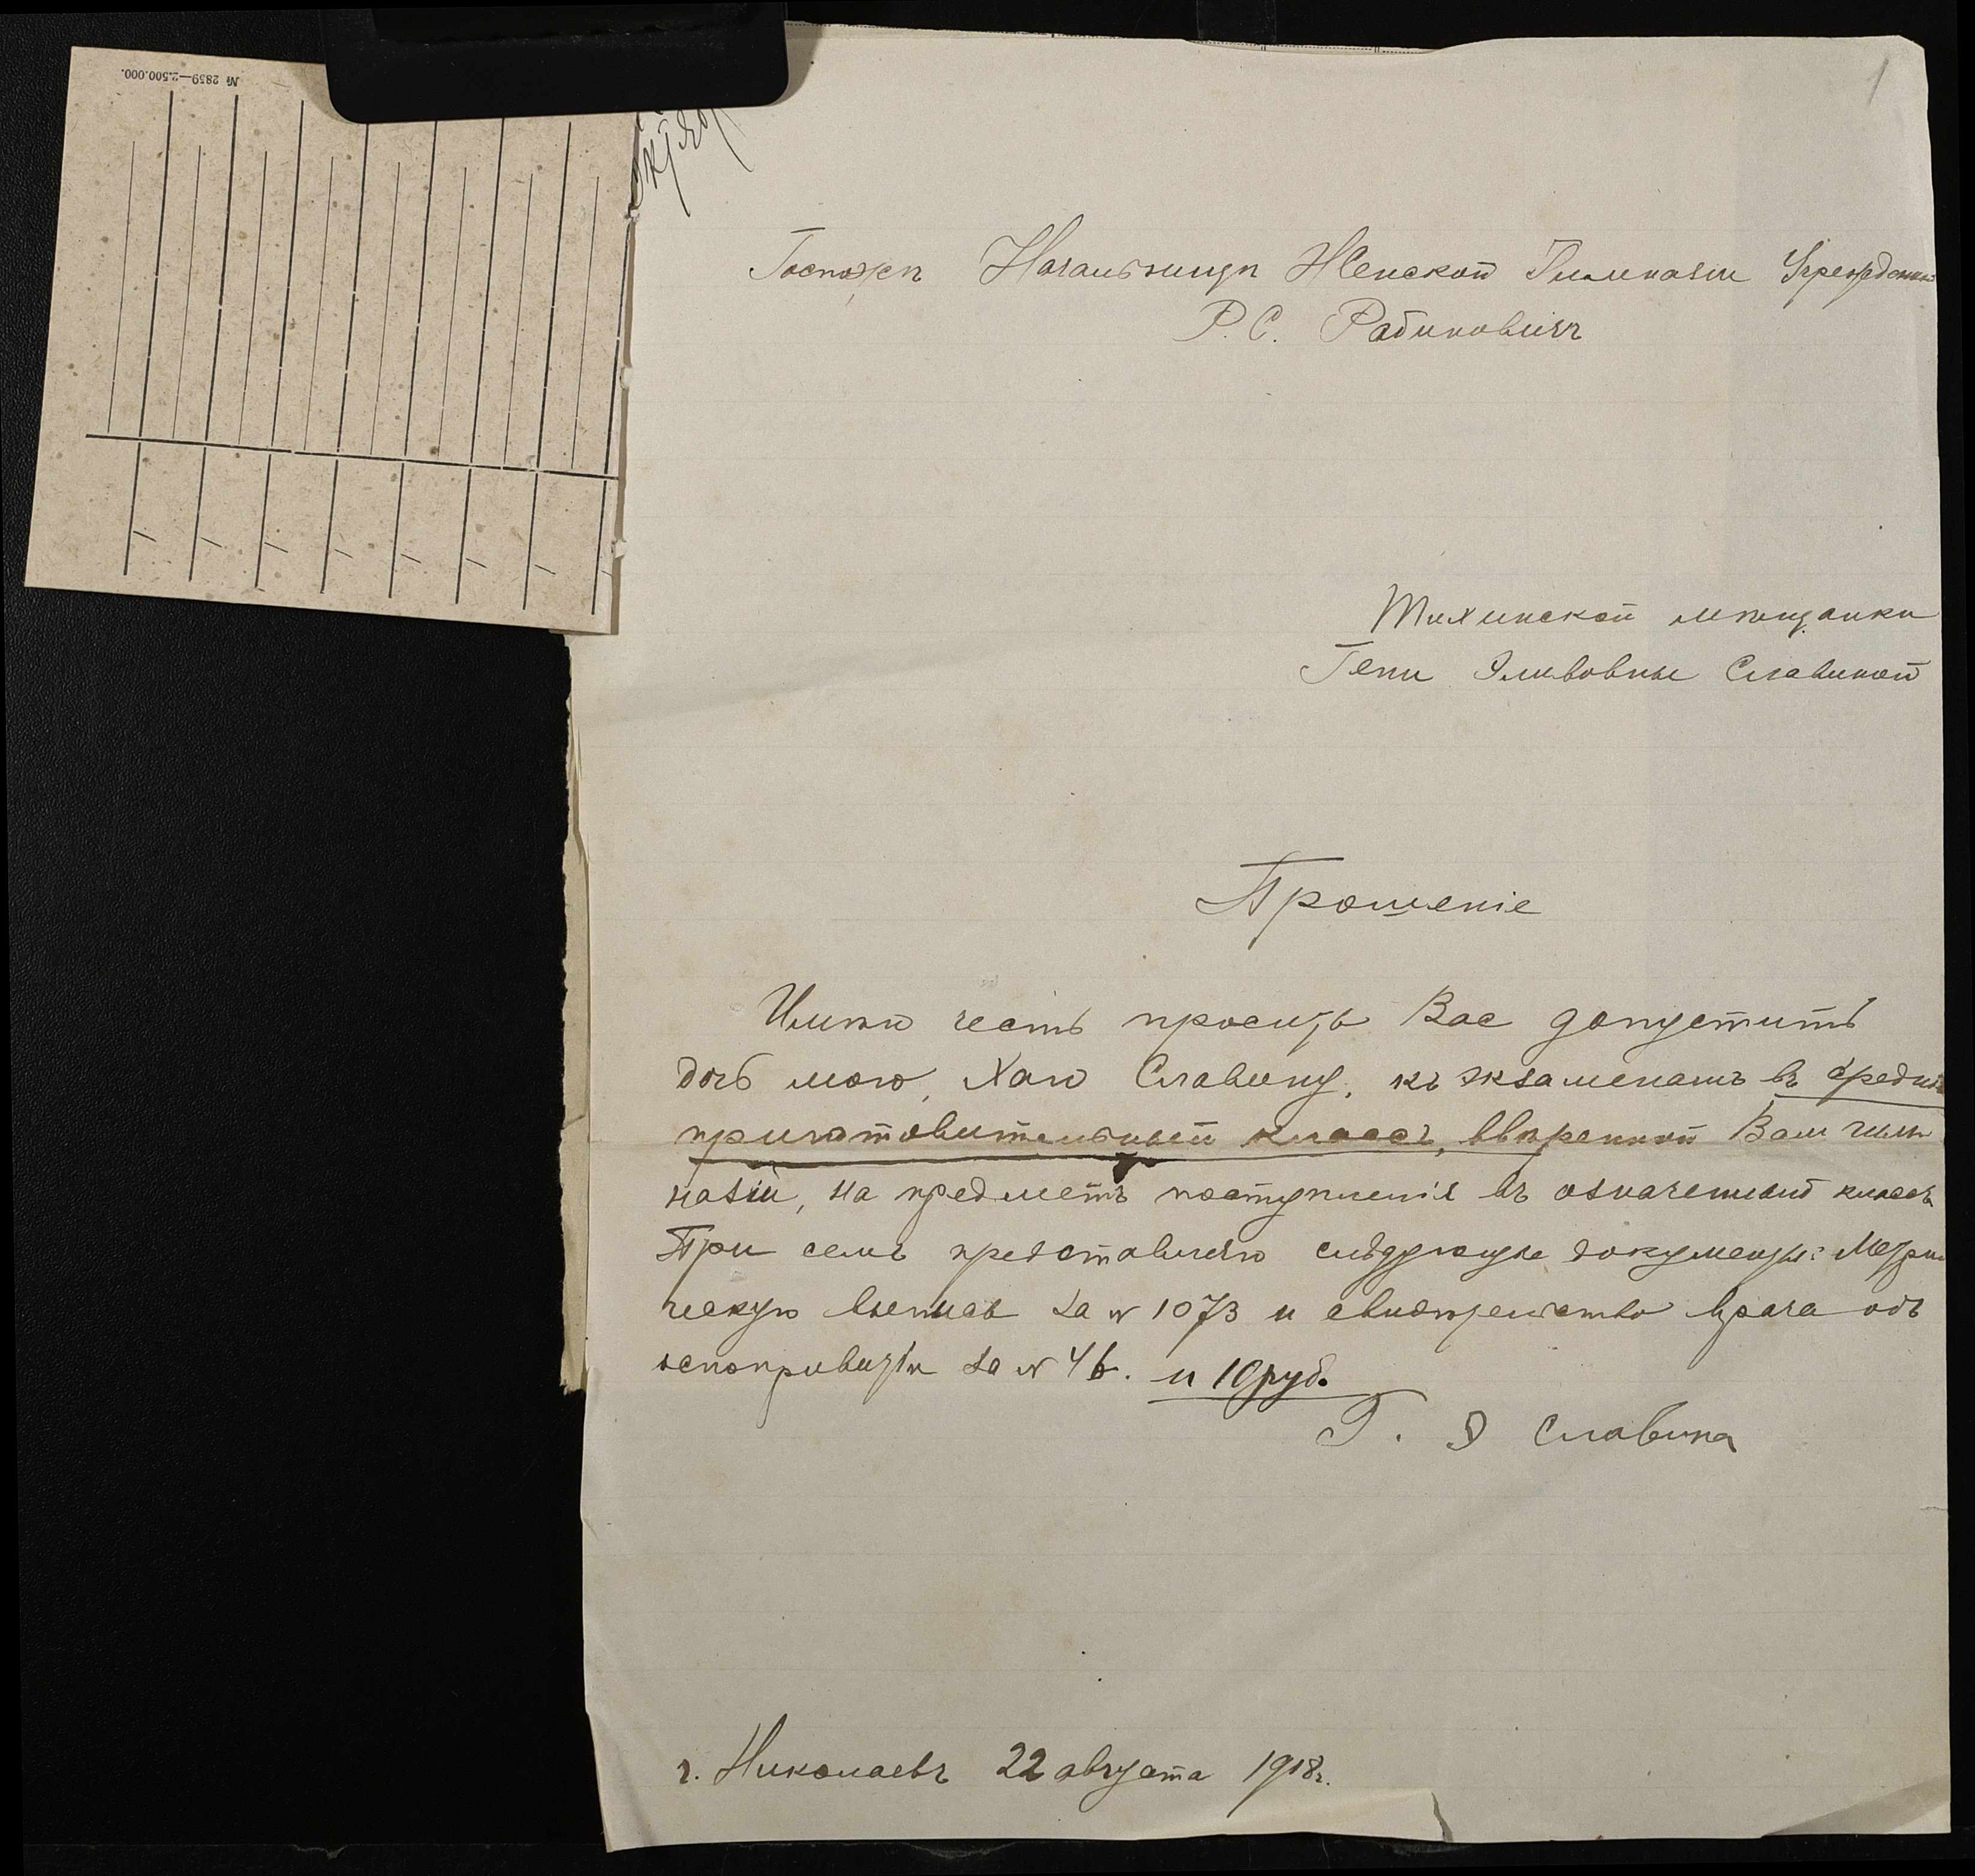 № 2859—2.500.000.
1
Госпожѣ Начальницѣ Женской Гимназіи Учрежденной
Р. С. Рабиновичъ
мѣщанки
Гени Славиной
Прошеніе
Имѣю честь просить Вас допустить
дочь мою, Хаю Славину, къ экзаменамъ въ средній
приготовительный классъ, ввѣренной Вам гим
назіи, на предметъ поступленія въ означенный классъ
При семъ представляю слѣдующіе документы: Метри
ческую выпись за № 1073 и свидѣтельство врача объ
оспопрививутіи за № 46. и 10 руб.
Г. Э Славина
г. Николаевъ 22 августа 1918 г.